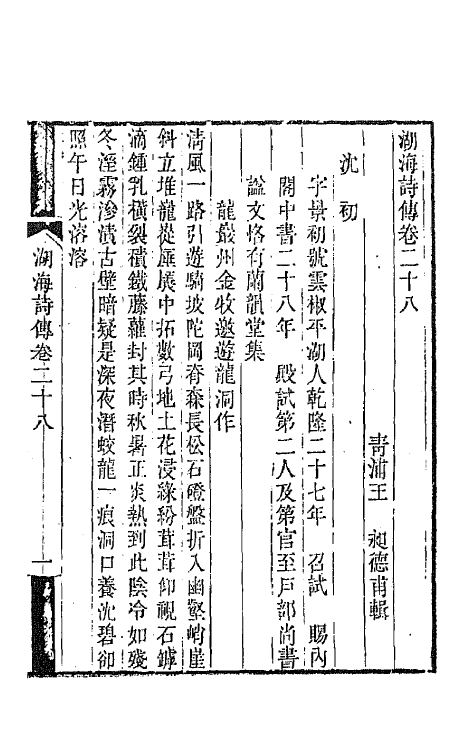 湖海詩傳卷二十八
青浦王 昶德甫輯
沈初
字景初號雲椒平湖人乾隆二十七年 召試 賜內
閣中書二十八年 殿試第二人及第官至戶部尚書
諡文恪有蘭韻堂集
龍巖州金牧邀遊龍洞作
清風一路引遊騎坡陀岡脊森長松石磴盤折入幽壑峭崖
斜立堆龍從厜㕒中拓數弓地土花浸綠紛茸茸仰視石罅
滴鍾乳橫裂積鐵藤蘿封其時秋暑正炎熱到此陰冷如殘
冬溼霧滲漬古壁暗疑是深夜潛蛟龍一痕洞口養沈碧卻
照午日光溶溶
湖海詩傳卷二十八
一